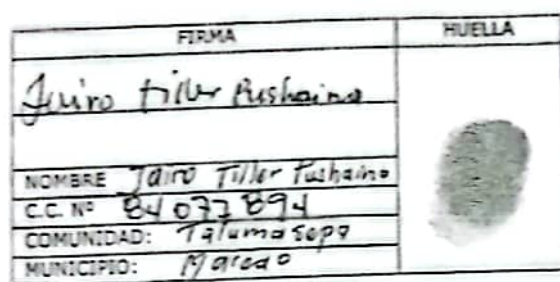 FIRMA
HUELLA
Jairo Tiller Pushaina
NOMBRE Jairo Tiller Pushaina
C.C. Nº 84 077 894
COMUNIDAD: Talumasepa
MUNICIPIO: